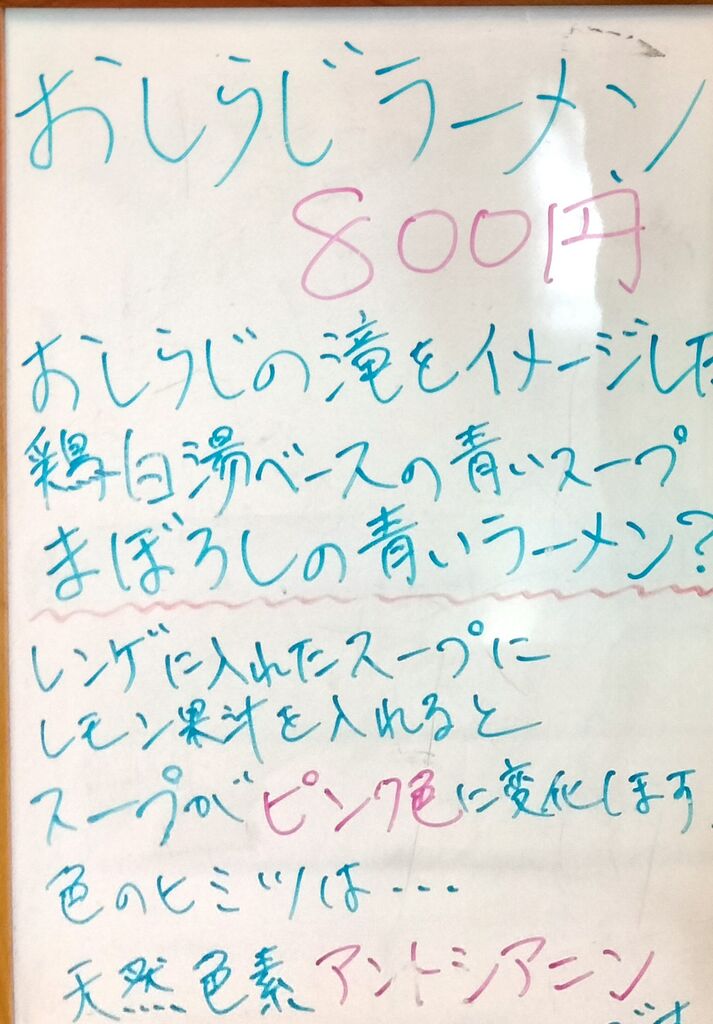 おしらじラーメン
800円
おしらじの滝をイメージした
鶏白湯ベースの青いスープ
まぼろしの青いラーメン?
レンゲに入れたスープに
レモン果汁を入れると
スープがピンク色に変化します
色のヒミツは・・・
天然色素アントシアニン